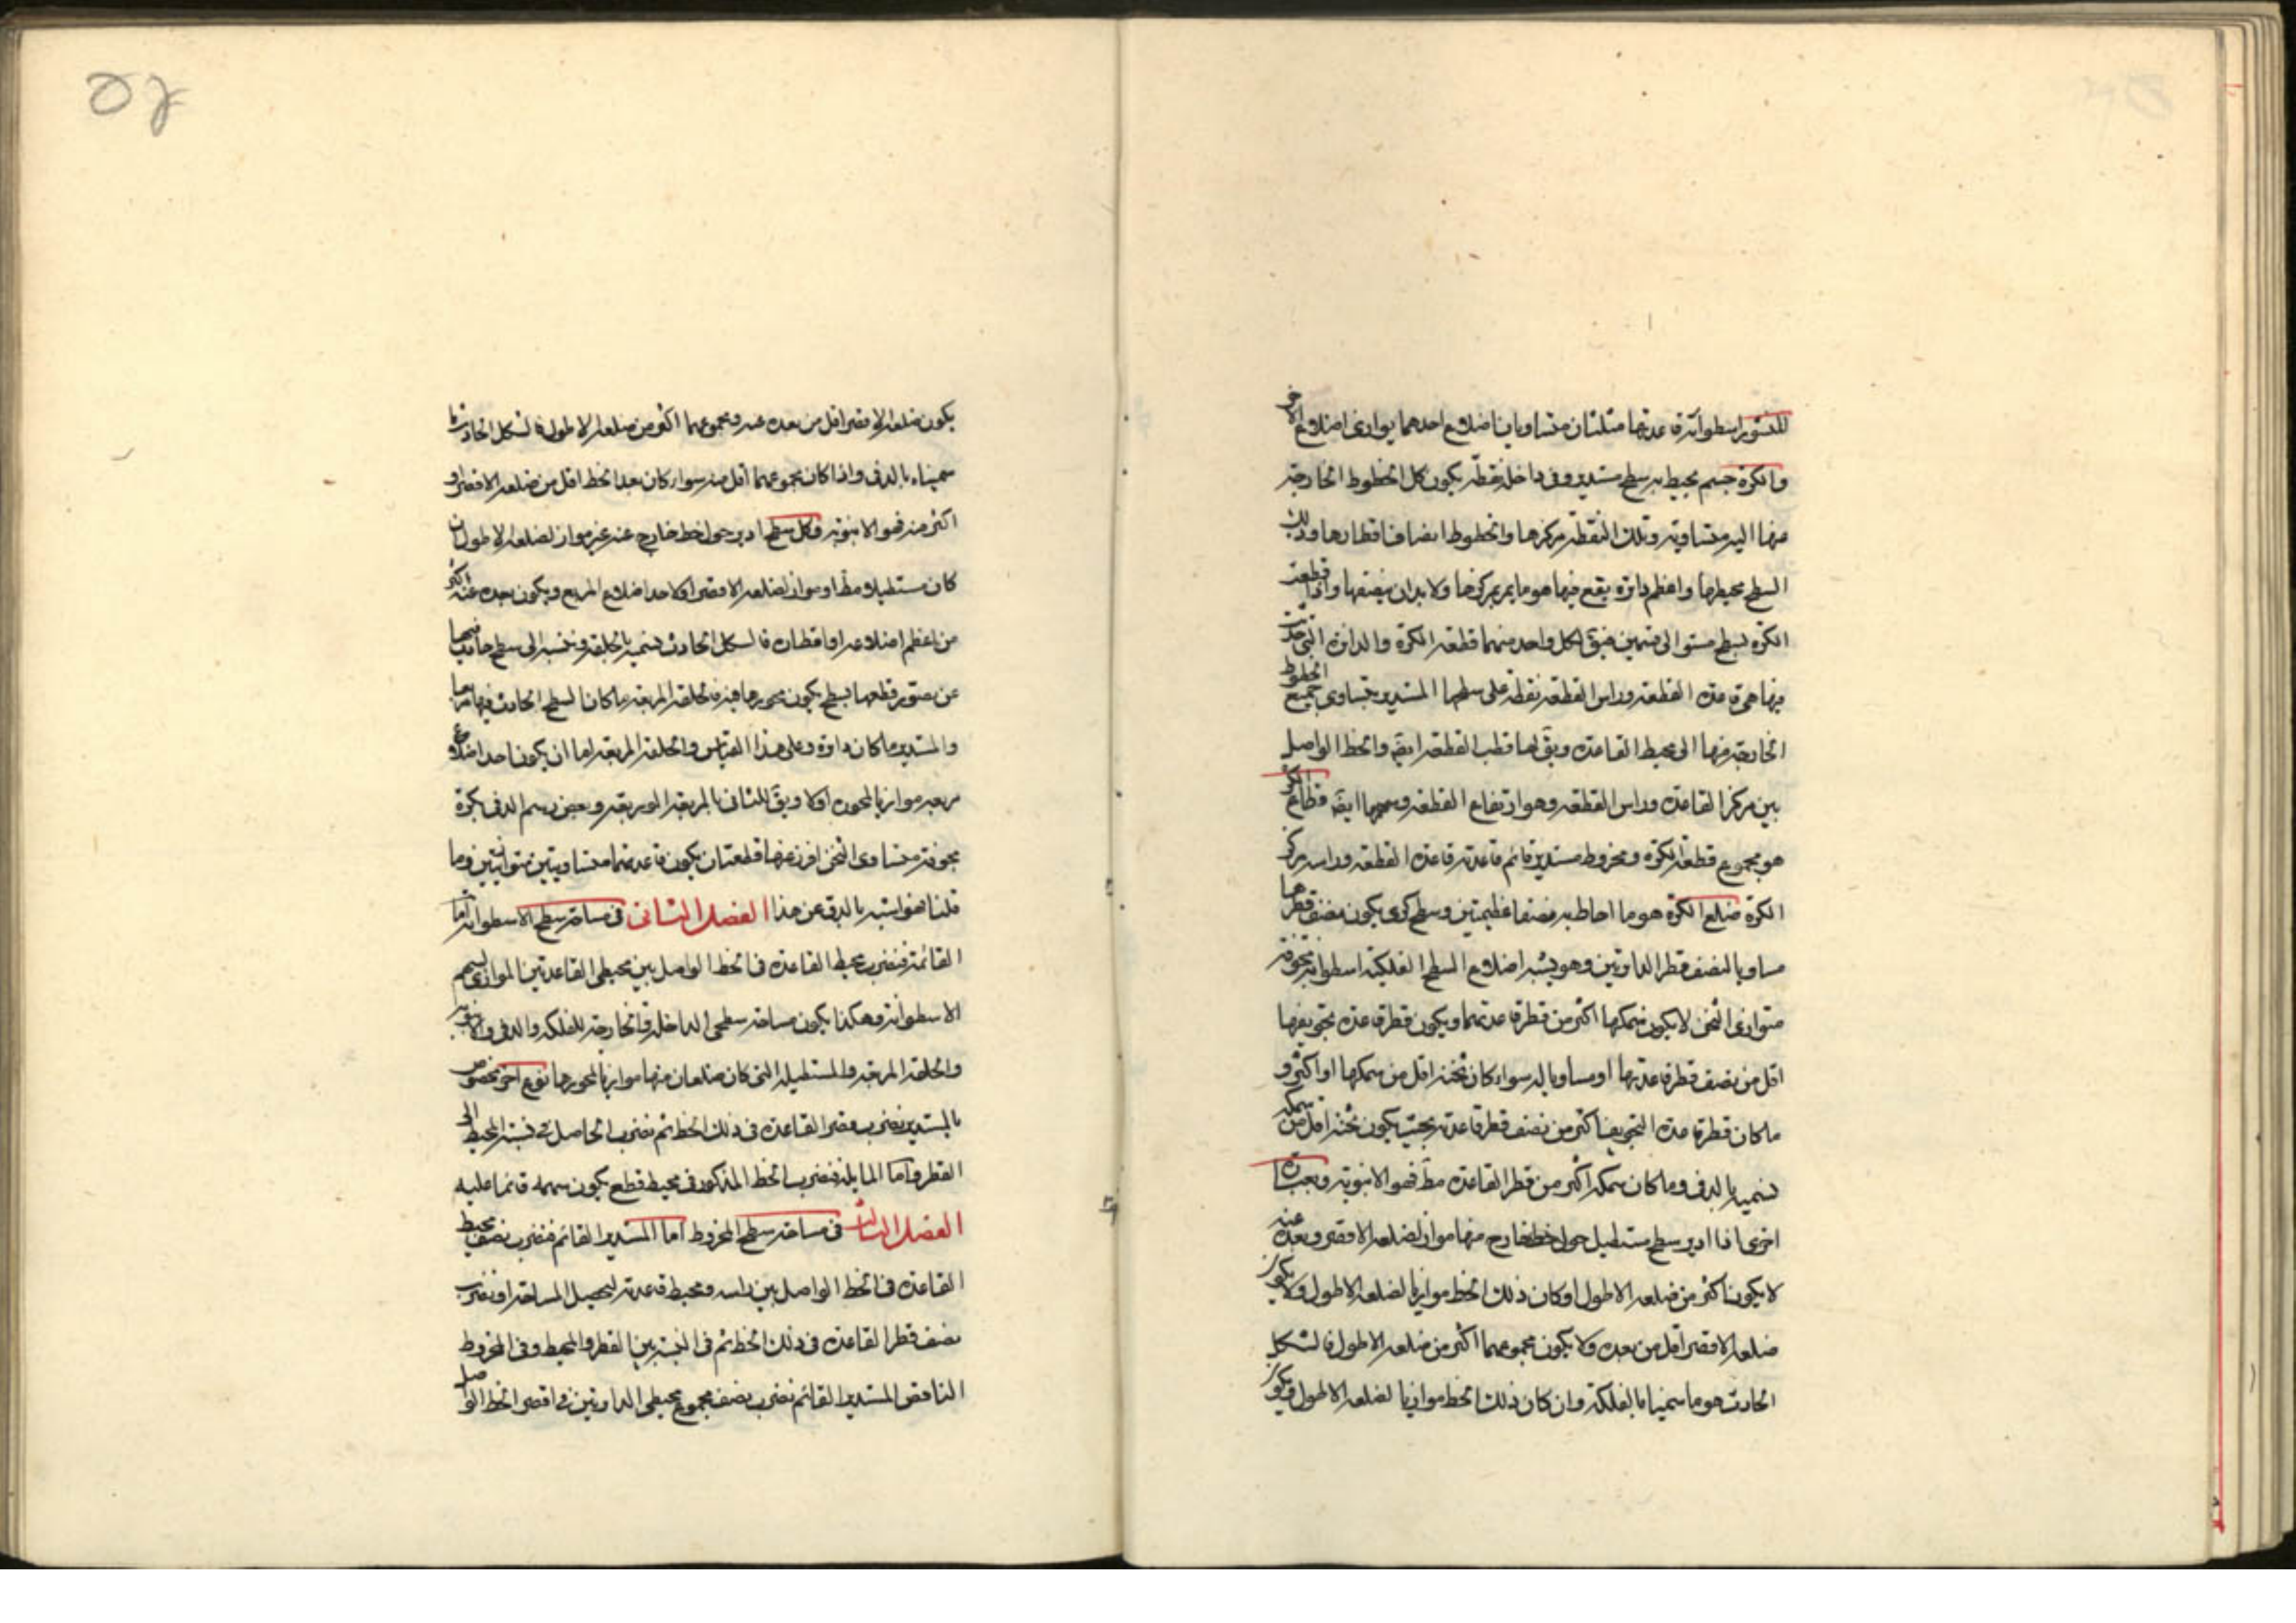 المنشور اسطوانة قاعدتها مثلثان متساويان اضلاع احدهما يوازى اضلاع الاخر
والكرة جسم يحيط به سطح مستدير وفى داخله نقطة يكون كل الخطوط الخارجة
منها اليه متساوية وتلك النقطة مركزها والخطوط انصاف اقطارها وذلك
السطح محيطها واعظم دائرة يقع فيها هو ما يمر بمركزها ولا بد ان ينصفها واذا قطعت
الكرة بسطح مستو الى قسمين فيقال لكل واحد منهما قطعة الكرة والدائرة التى حدثت
فيها هى قاعدة القطعة وراس القطعة نقطة على سطحها المستدير يتساوى جميع الخطوط
الخارجة منها الى محيط القاعدة ويق لها قطب القطعة ايضَ والخط الواصل
بين مركز القاعدة وراس القطعة وهو ارتفاع القطعة وسهمها ايضَ قطاع الكرة
هو مجموع قطعة الكرة ومخروط مستدير قائم قاعدته قاعدة القطعة وراسه مركز
الكرة ضلع الكرة هو ما احاط به نصفا عظيمتين وسطح كرى يكون نصف قطرهما
مساويا لنصف قطر الدائرتين وهو يشبه اضلاع السطح الفلكية اسطوانة مجوفة
متوازى الثخن لا يكون سمكها اكثر من قطر قاعدتها ويكون قطر قاعدة تجويفها
اقل من نصف قطر قاعدتها او مساويا له سواء كان ثخنه اقل من سمكها او اكثر و
ما كان قطر قاعدة التجويف اكثر من نصف قطر قاعدته بحيث يكون ثخنه اقل من سمكه
نسميه بالدف وما كان سمكه اكثر من قطر القاعدة مط فهو الانبوبة وبعبارة
اخرى اذا ادير سطح مستطيل حول خط خارج منها مواز لضلعه الاقصر وبعده عنه
لا يكون اكثر من ضلعه الاطول او كان ذلك الخط موازيا لضلعه الاطول ولا يكون
ضلعه الاقصر اقل من بعده ولا يكون مجموعهما اكثر من ضلعه الاطول فالشكل
الحادث هو ما سميناها بالفلكة وان كان ذلك الخط موازيا لضلعه الاطول فيكون
يكون ضلعه الاقصر اقل من بعده عنه ومجموعهما اكثر من ضلعه الاطول فالشكل الحادث ما
سميناه بالدف واذا كان مجموعهما اقل منه سواء كان بعد الخط اقل من ضلعه الاقصر او
اكثر منه فهو الانبوبة وكل سطح ادير حول خط خارج عنه غير مواز لضلعه الاطول ان
كان مستطيلا ومط او مواز لضلعه الاقصر او لاحد اضلاع المربع ويكون بعده عنه اكثر
من اعظم اضلاعه او اقطاره فالشكل الحادث نسميه بالحلقة وننسبه الى سطح
قطعها بسطح يكون محورها فيه فالحلقة المربعة ما كان السطح الحادث فيها مربعا
والمستدير ما كان دائرة وعلى هذا القياس والحلقة المربعة اما ان يكون احد اضلاع
مربعه موازيا للمحور او لا ويق للثانى بالمربعة الموربة وبعض رسم الدف بكرة
مجوفة متساوى الثخن افرز عنها قطعتان يكون قاعدتهما متساويتين متوازيتين وما
قلناه فهو اشبه بالدف عن هذا الفصل الثانى فى مساحة سطح الاسطوانة اما
القائمة فنضرب محيط القاعدة فى الخط الواصل بين محيطى القاعدتين الموازى لسهم
الاسطوانة وهكذا يكون مساحة سطحى الداخلة والخارجة للفلكة والدف والانبوبة
والحلقة المربعة والمستطيلة التى كان ضلعان منها موازيا لمحورها نوع اخر مخصوص
بالمستدير نضرب قطر القاعدة فى ذلك الخط ثم نضرب الحاصل فى نسبة المحيط الى
القطر واما المايلة فنضرب الخط المذكور فى محيط قطع يكون سهمه قائما عليه
الفصل الثالث فى مساحة سطح المخروط اما المستدير القائم فنضرب نصف محيط
القاعدة فى الخط الواصل بين راسه ومحيط قاعدته ليحصل المساحة او نضرب
نصف قطر القاعدة فى ذلك الخط ثم فى النسبة بين القطر والمحيط وفى المخروط
الناقص المستدير القائم نضرب نصف مجموع محيطى الدائرتين فى اقصر الخط الواصل